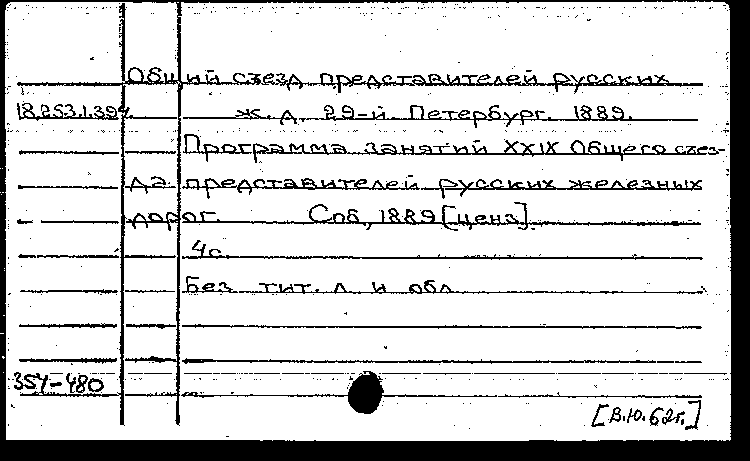 Общий съезд представителей русских
18.253.1.394. ж. д. 29-й. Петербург. 1889.
Программа занятий XXIX Общего съез-
да представителей русских железных
дорог. Спб, 1889 [ценз].
4с.
Без тит. л и обл
357-480
[В.Ю. 62г.]